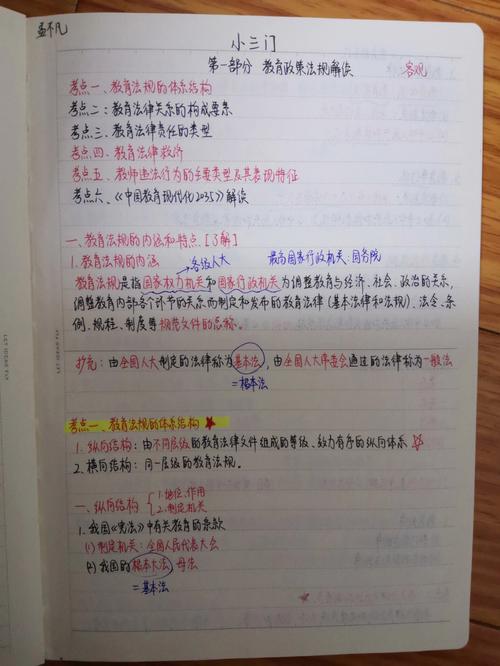 孟不凡
小三门
第一部分 教育政策法规解读 客观
考点一、教育法规的体系结构
考点二：教育法律关系的构成要素
考点三、教育法律责任的类型
考点四、教育法律救济
考点五、教师违法行为的主要类型及其表现特征
考点六、《中国教育现代化2035》解读
一、教育法规的内涵和特点【了解】
1.教育法规的内涵 →各级人大 最高国家行政机关：国务院
教育法规是指国家权力机关和国家行政机关为调整教育与经济、社会、政治的关系，
调整教育内部各个环节的关系而制定和发布的教育法律（基本法律和法规）、法令、条
例、规程、制度等规范文件的总称。
扩充：由全国人大制定的法律称为基本法，由全国人大常委会通过的法律称为一般法
=根本法
考点一、教育法规的体系结构 ★
1.纵向结构：由不同层级的教育法律文件组成的等级、效力有序的纵向体系 ☆
2.横向结构：同一层级的教育法规。
一、纵向结构 { 1.地位、作用
2.制定机关
1.我国《宪法》中有关教育的条款
(1)制定机关：全国人民代表大会
(2)我国的根本大法 母法
=基本法